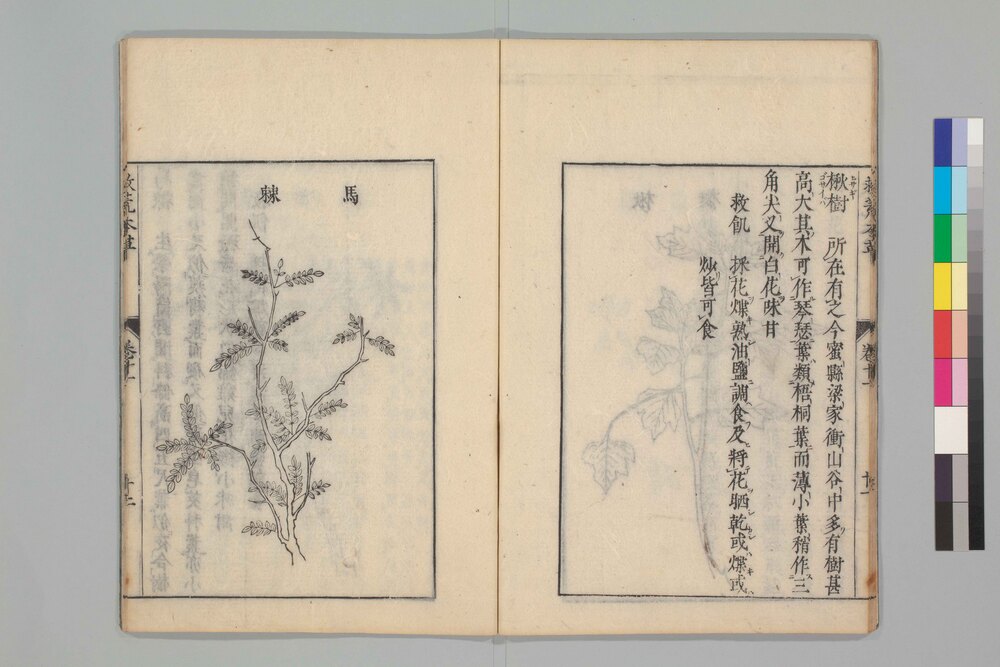 楸樹 所在有之今蜜縣梁家衝山谷中多有樹甚
ヒサギ
高大其木可作琴瑟葉類梧桐葉而薄小葉稍作三
角尖叉開白花味甘
救飢 採花煠熟油鹽調食及將花晒乾或煠或
炒皆可食
卷十一
馬
棘
救荒本草
卷十一